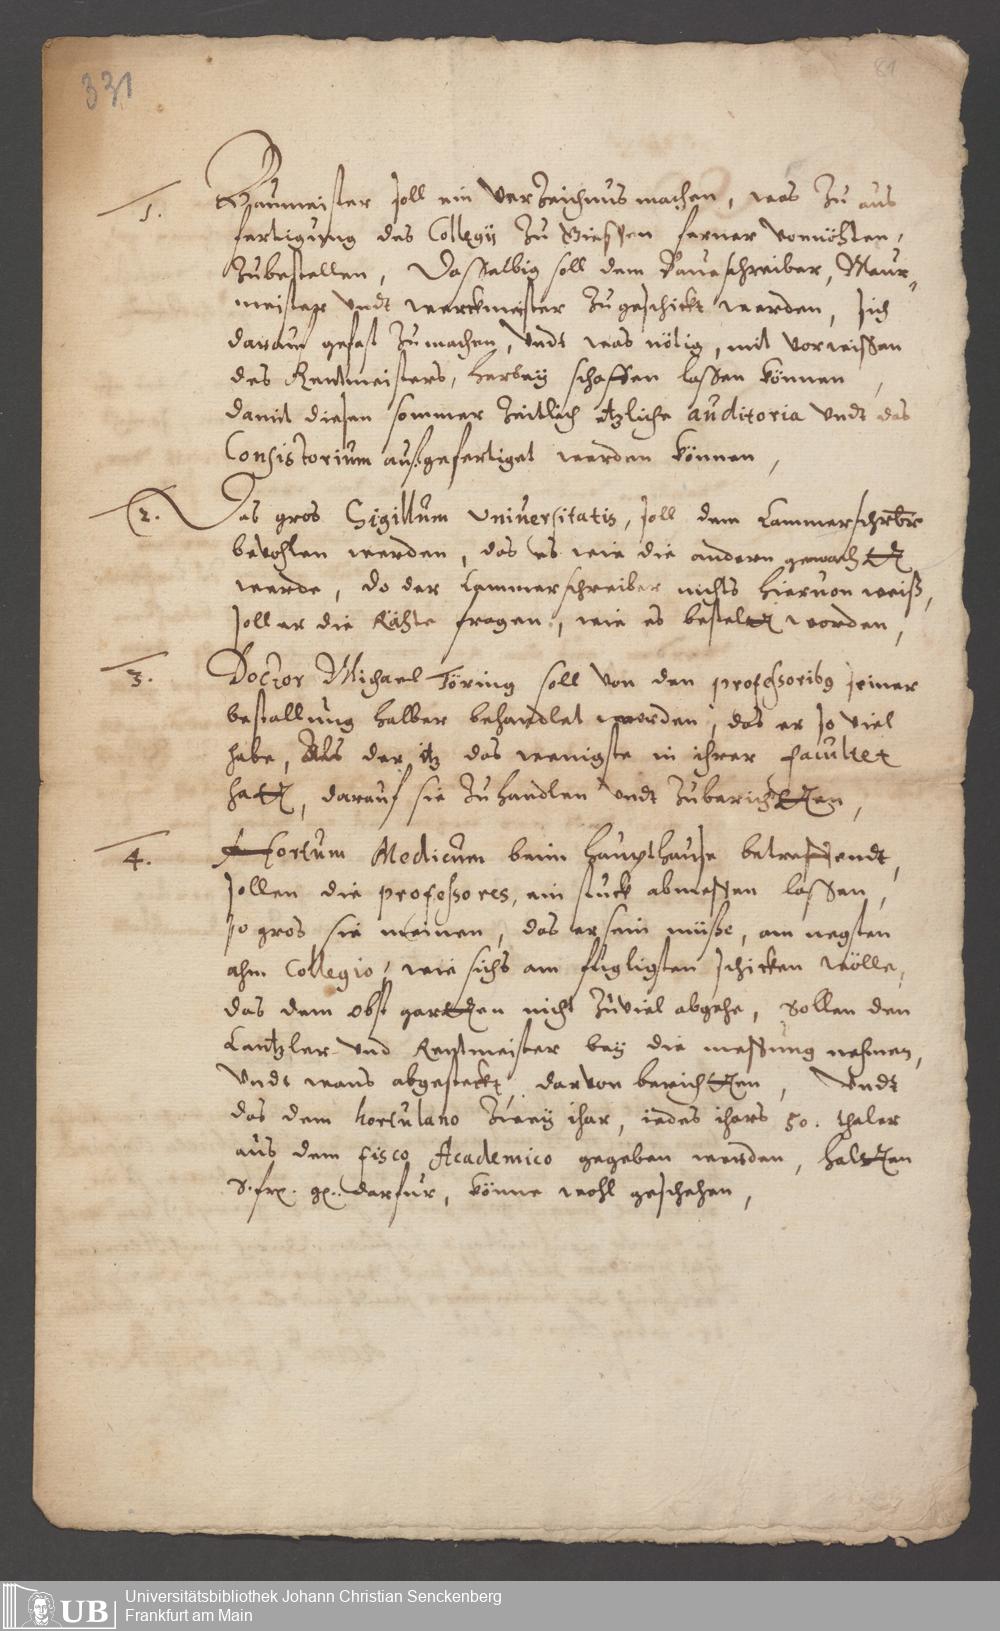 331
81
1. Baumeister soll ein Verzeichnus machen, was zu aus
fertigung des Collegij zu Giessen ferner vonnöhten,
zubestellen, Dasselbig soll dem Bauschreiber, Maur„
meister undt werckmeister zugeschickt werden, sich
darauf gefast zumachen, undt was nötig, mit vorwissen
des Rentmeisters, herbey schaffen lassen können,
damit diesen sommer zeitlich etzliche auditoria undt das
Consistorium außgefertiget werden können,
2. Das gros Sigillum Universitatis, soll dem Cammerschrbr
bevohlen werden, das es wie die andern gemacht
werde, do der Cammerschreiber nichts hiervon weiß,
soll er die Rähte fragen, wie es bestelt worden,
3. Doctor Michael Töring soll von den professoribus seiner
bestallung halber behandlet werden, das er so viel
habe, Als der itz das wenigste in ihrer facultet
hatt, darauf sie zuhandlen undt zuberichten,
4. Hortum Medicum beim Haupthause betreffendt,
sollen die professores, ein stuck abmessen lassen,
so gros sie meinen, das er sein müsse, am negsten
ahm Collegio, wie sichs am fügligsten schicken wölle,
das dem obst garten nicht zuviel abgehe, Sollen den
Cantzler und Rentmeister bey die messung nehmen,
Undt wans abgesteckt, darvon berichten, Undt
das dem hortulano zwey ihar, iedes ihars 50. thaler
aus dem fisco Academico gegeben werden, halten
S. frl. g. darfur, könne wohl geschehen,
Universitätsbibliothek Johann Christian Senckenberg
Frankfurt am Main
UB